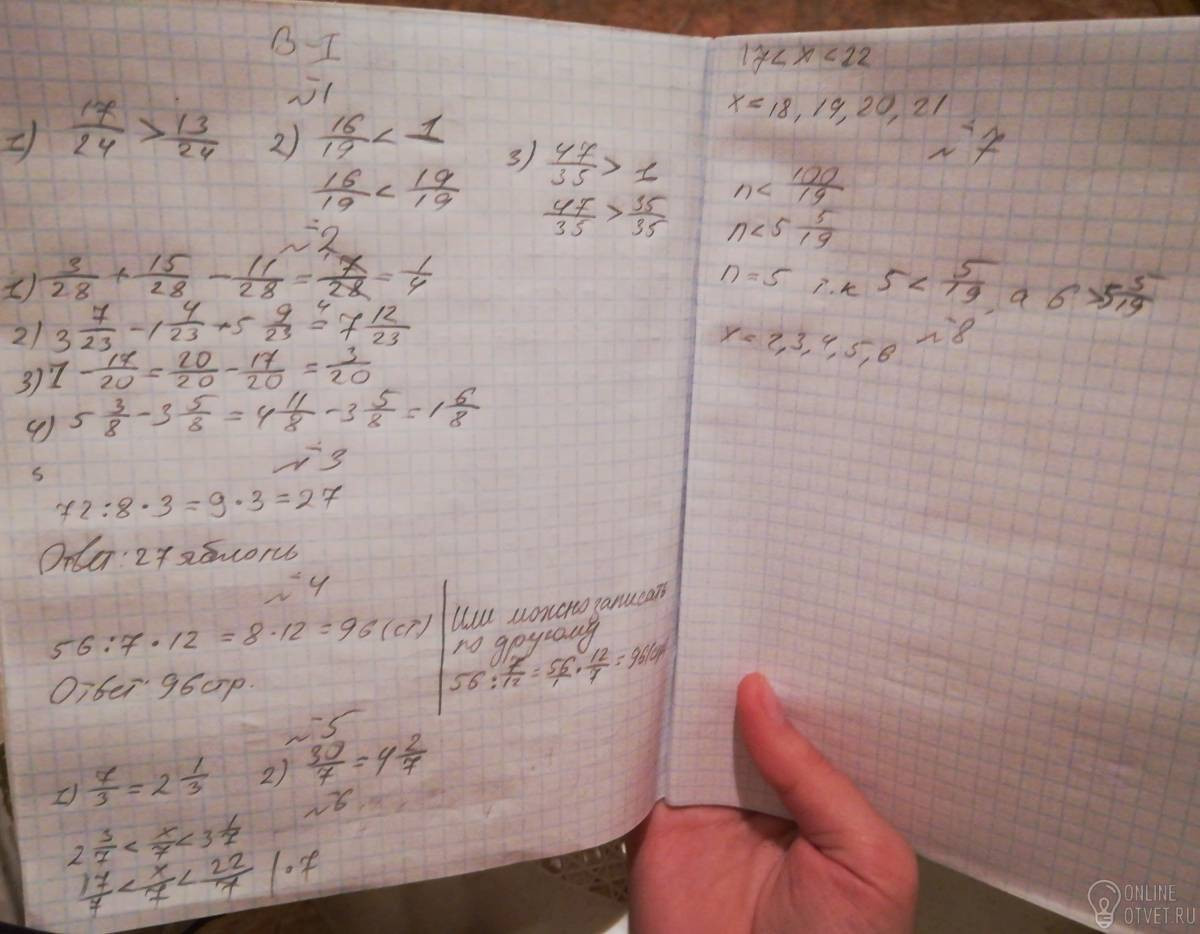 В-I
№1
1) 17/24 > 13/24 2) 16/19 < 1 3) 47/35 > 1
16/19 < 19/19 47/35 > 35/35
№2
1) 3/28 + 15/28 - 11/28 = 7/28 = 1/4
2) 3 7/23 - 1 4/23 + 5 9/23 = 7 12/23
3) 1 - 17/20 = 20/20 - 17/20 = 3/20
4) 5 3/8 - 3 5/8 = 4 11/8 - 3 5/8 = 1 6/8
№3
72:8·3=9·3=27
Ответ: 27 яблонь
№4
56:7·12 = 8·12 = 96 (ст)
Ответ: 96 стр.
Или можно записать
по другому
56 : 7/12 = 56/1 · 12/7 = 96 (стр
№5
1) 7/3 = 2 1/3 2) 30/7 = 4 2/7
№6
2 3/7 < x/7 < 3 1/7
17/7 < x/7 < 22/7 | ·7
17 < x < 22
x = 18, 19, 20, 21
№7
n < 100/19
n < 5 5/19
n = 5 т.к 5 < 5/19, а 6 > 5 5/19
№8
x = 2,3,4,5,6
ONLINE
OTVET.RU